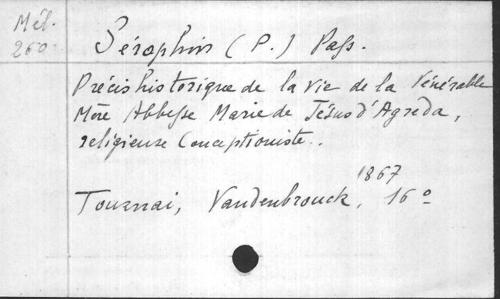 Mél.
260
Séraphin (P.) Pass.
Précis historique de la vie de la Vénérable
Mère Abbesse Marie de Jésus d'Agreda,
religieuse Conceptioniste..
1867
Tournai, Vandenbrouck, 16º